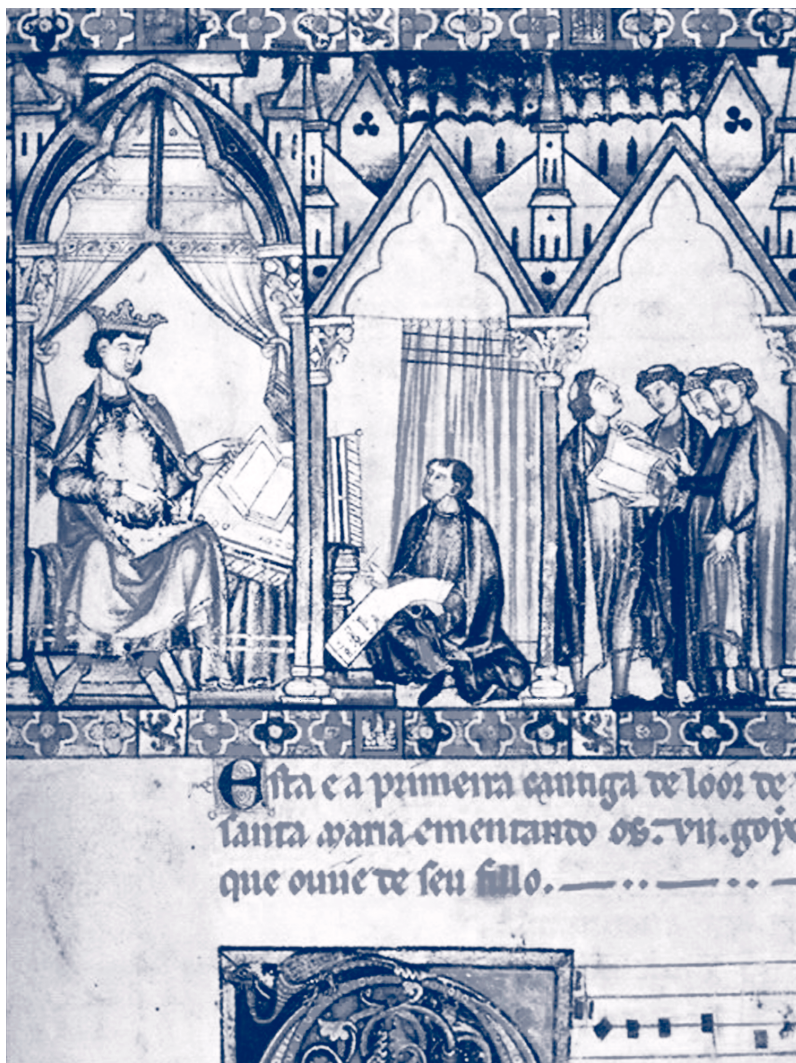 Esta e a primeira cantiga de loor de
santa maria ementando os .vii. goyo
que ouue de seu fillo.